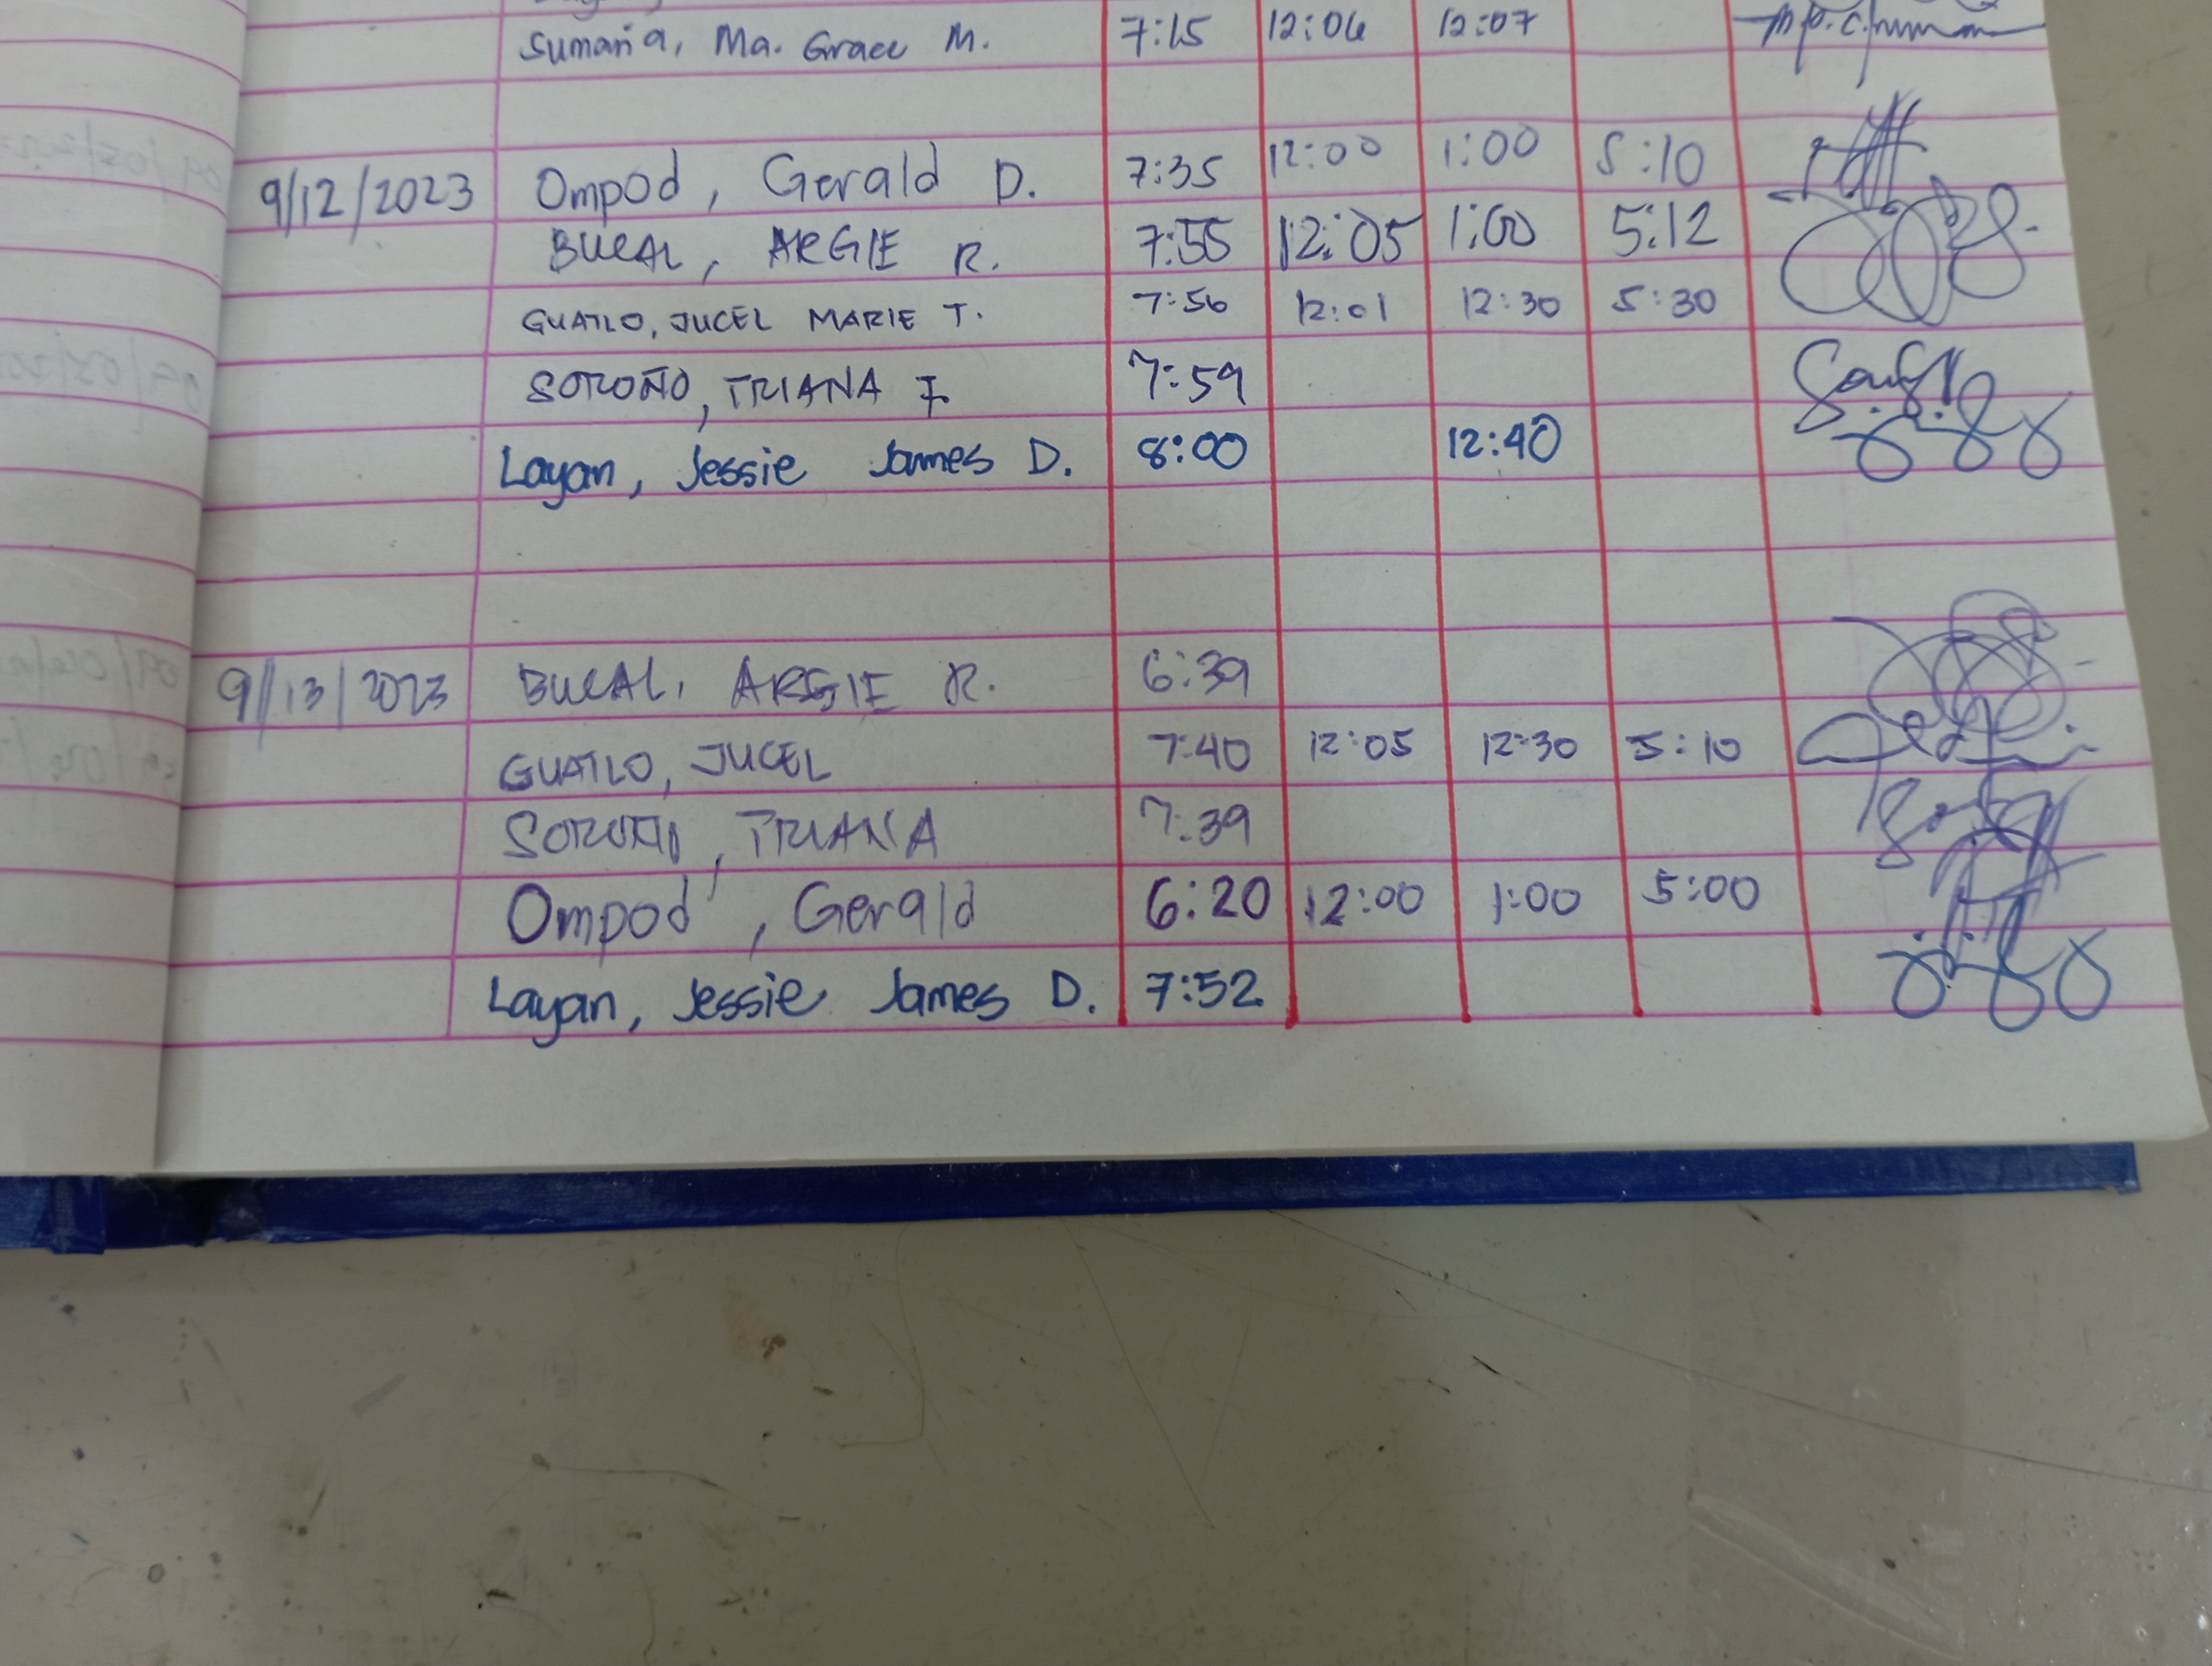 Sumaña, Ma. Grace M. 7:15 12:06 12:07
9/12/2023 Ompod, Gerald D. 7:35 12:00 1:00 5:10
BUCAL, ARGIE R. 7:55 12:05 1:00 5:12
GUATLO, JUCEL MARIE T. 7:56 12:01 12:30 5:30
SOROÑO, TRIANA F. 7:59
Layan, Jessie James D. 8:00 12:40
9/13/2023 BUCAL, ARGIE R. 6:39
GUATLO, JUCEL 7:40 12:05 12:30 5:10
SOROÑO, TRIANA 7:39
Ompod, Gerald 6:20 12:00 1:00 5:00
Layan, Jessie James D. 7:52